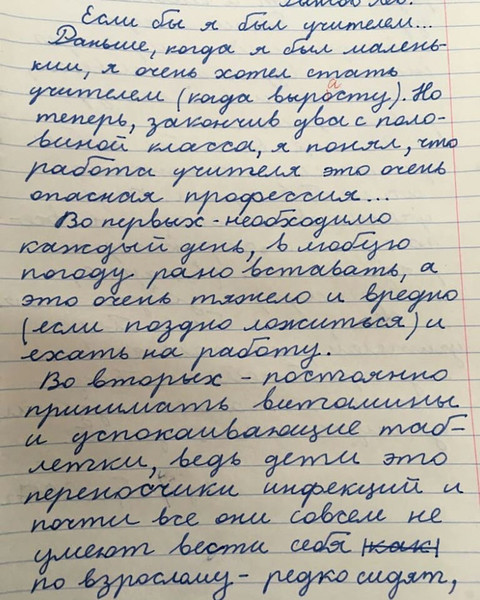 Если бы я был учителем...
Раньше, когда я был малень-
ким, я очень хотел стать
учителем (када выросту). Но
теперь, закончив два с поло-
виной класса, я понял, что
работа учителя это очень
опасная профессия...
Во первых - необходимо
каждый день, в любую
погоду рано вставать, а
это очень тяжело и вредно
(если поздно ложиться) и
ехать на работу.
Во вторых - постоянно
принимать витамины
и успокаивающие таб-
летки, ведь дети это
переносчики инфекций и
почти все они совсем не
умеют вести себя как
по взрослому - редко сидят,